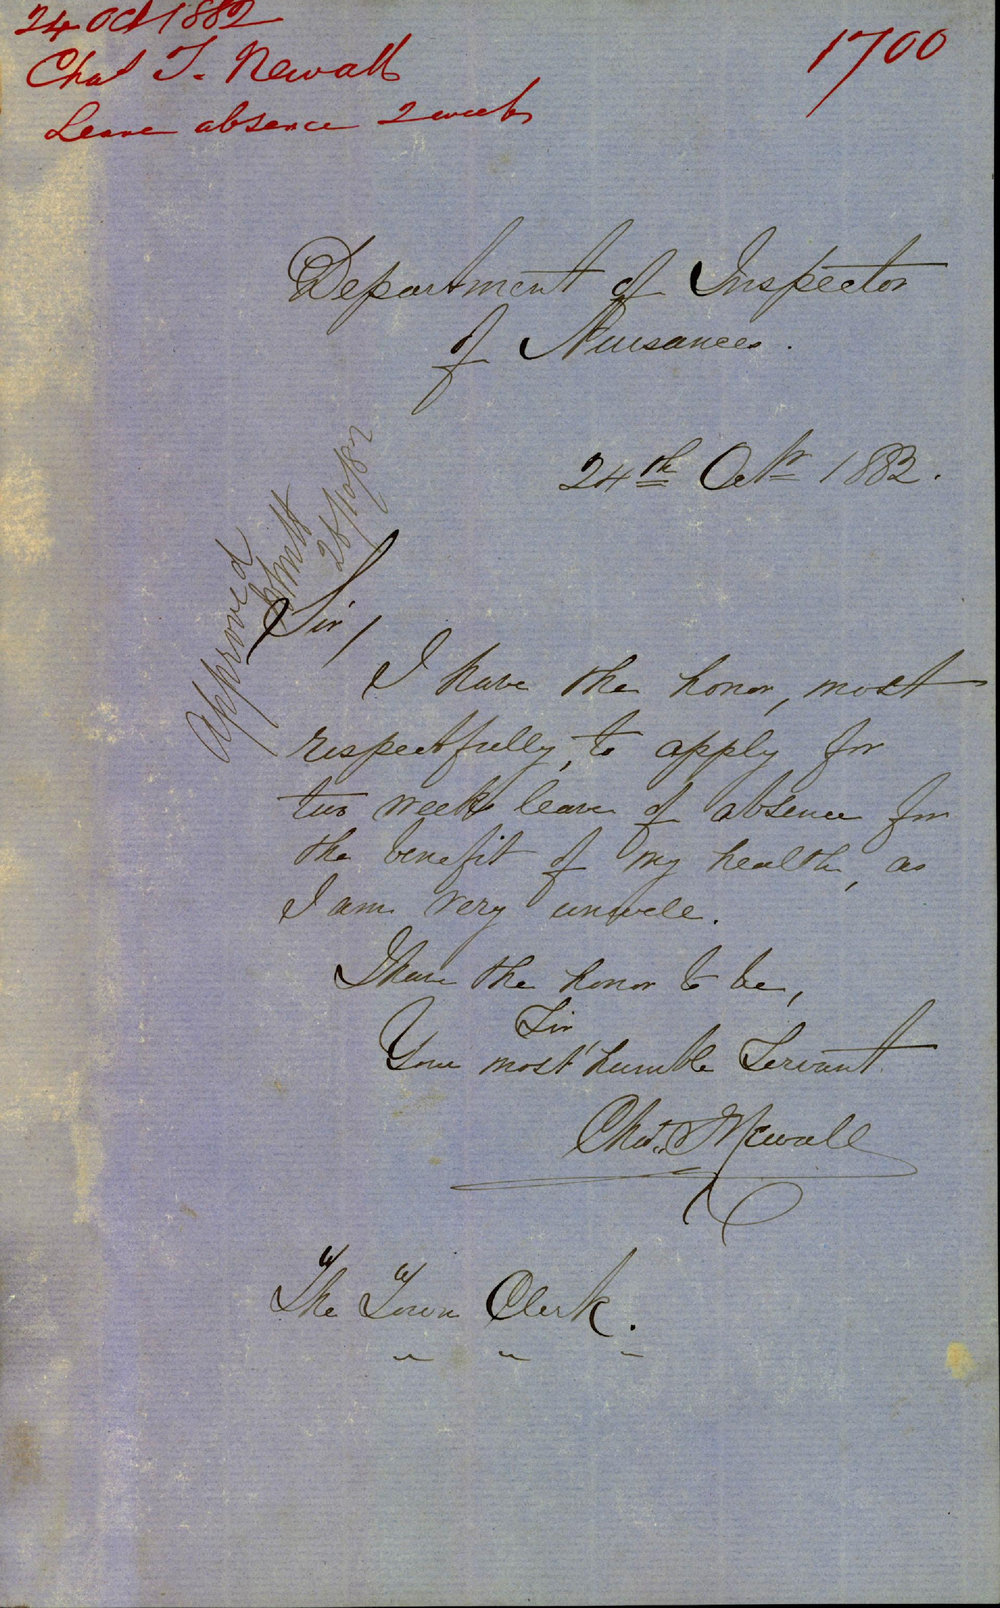 24 Oct 1882
Chas T. Newall
Leave absence 2 weeks
1700
Department of Inspector
of Nuisances.
24th Octr 1882.
Approved
26/10/82
Sir,
I have the honor, most
respectfully, to apply for
two weeks leave of absence for
the benefit of my health, as
I am very unwell.
I have the honor to be,
Sir
Your most humble Servant
Chas. T Newall
The Town Clerk.